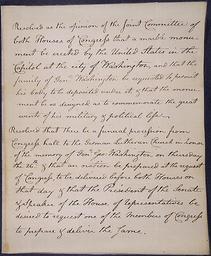 Resolved as the opinion of the Joint Committee of
both Houses of Congress that a marble monu-
ment be erected by the United States in the
Capitol at the city of Washington, and that the
family of Gen.l Washington be requested to permit
his body to be deposited under it & that the monu-
ment be so designed as to commemorate the great
events of his military & political life.
Resolved that there be a funeral procession from
Congress hall to the German Lutheran Church in honor
of the memory of Gen.l Geo. Washington on thursday
the 26th & that an oration be prepared at the request
of Congress, to be delivered before both Houses on
that day & that the President of the Senate
& Speaker of the House of Representatives be
desired to request one of the Members of Congress
to prepare & deliver the same.